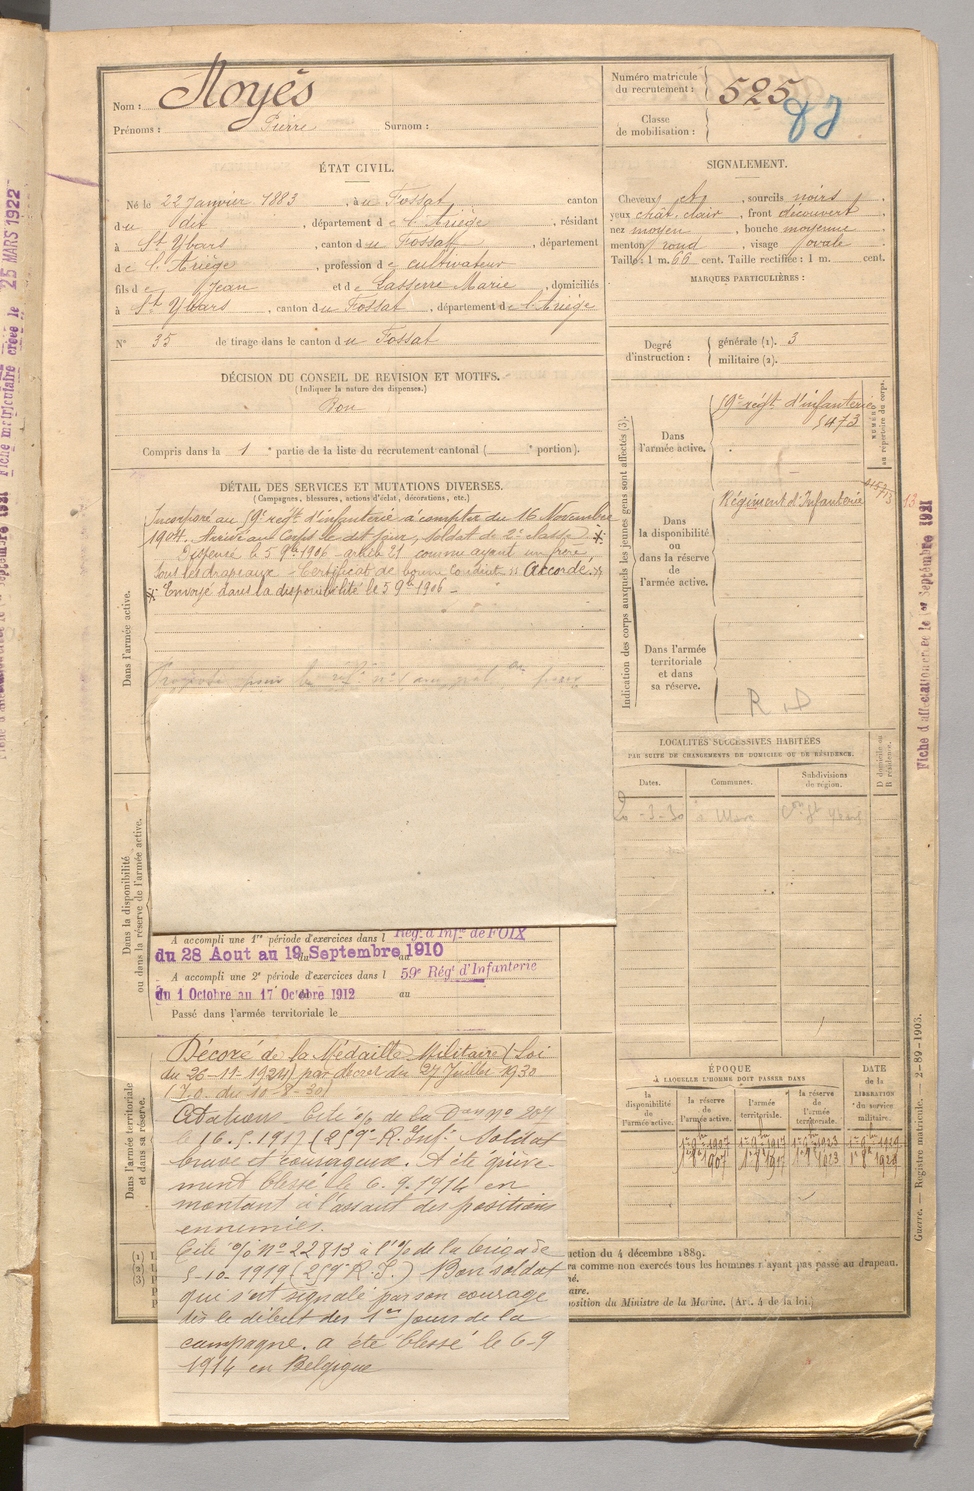 Nom : Noyés
Prénoms : Pierre Surnom :
Numéro matricule du recrutement : 525
Classe de mobilisation :
ÉTAT CIVIL.
Né le 22 Janvier 1883, à u Fossat canton
du dit, département de l'Ariège, résidant
à St Ybars, canton du Fossat, département
de l'Ariège, profession de cultivateur
fils de Jean et de Lasserre Marie, domiciliés
à St Ybars, canton du Fossat, département de l'Ariège
N° 35 de tirage dans le canton du Fossat
SIGNALEMENT.
Cheveux ch, sourcils noirs,
yeux chat. clair, front découvert,
nez moyen, bouche moyenne,
menton rond, visage ovale.
Taille : 1 m. 66 cent. Taille rectifiée : 1 m. cent.
MARQUES PARTICULIÈRES :
Degré d'instruction : générale (1). 3
militaire (2).
DÉCISION DU CONSEIL DE REVISION ET MOTIFS.
(Indiquer la nature des dispenses.)
Bon
Compris dans la 1e partie de la liste du recrutement cantonal ( e portion).
DÉTAIL DES SERVICES ET MUTATIONS DIVERSES.
(Campagnes, blessures, actions d'éclat, décorations, etc.)
Dans l'armée active.
Incorporé au 59e régt d'infanterie à compter du 16 Novembre
1904. Arrivé au Corps le dit jour, soldat de 2e classe.
Dispensé le 5 9bre 1906 - article 21 comme ayant un frère
sous les drapeaux - Certificat de bonne conduite « Accordé »
Envoyé dans la disponibilité le 5 9bre 1906 -
Dans la disponibilité ou dans la réserve de l'armée active.
A accompli une 1re période d'exercices dans l Rég. d'Inf.ie de FOIX
du 28 Aout au 19 Septembre 1910
A accompli une 2e période d'exercices dans l 59e Rég.t d'Infanterie
du 1 Octobre au 17 Octobre 1912 au
Passé dans l'armée territoriale le
Dans l'armée territoriale et dans sa réserve.
Décoré de la Médaille Militaire (Loi
du 26-11-1924) par décret du 27 Juillet 1930
(J.O. du 10-8-30)
Citations Cité o/ de la Don no 204
le 16.5.1917 (259e R. Inf. Soldat
brave et courageux. A été griève-
ment blessé le 6.9.1914 en
montant à l'assaut des positions
ennemies.
Cité o/ no 22813 à l'o/ de la brigade
5-10-1919 (259e R.I.) Bon soldat
qui s'est signalé par son courage
dès le début des 1ers jours de la
campagne. a été blessé le 6-9
1914 en Belgique
Indication des corps auxquels les jeunes gens sont affectés (3).
Dans l'armée active. 59e régt d'infanterie
5473
NUMÉRO au répertoire du corps.
Dans la disponibilité ou dans la réserve de l'armée active. Régiment d'Infanterie
Dans l'armée territoriale et dans sa réserve.
R D
LOCALITÉS SUCCESSIVES HABITÉES
PAR SUITE DE CHANGEMENTS DE DOMICILE OU DE RÉSIDENCE.
Dates. Communes. Subdivisions de région. D domicile ou R résidence.
ÉPOQUE
À LAQUELLE L'HOMME DOIT PASSER DANS
la disponibilité de l'armée active. la réserve de l'armée active. l'armée territoriale. la réserve de l'armée territoriale. DATE de la LIBÉRATION du service militaire.
1er 8bre 1907 1er 8bre 1917 1er 8bre 1923 1er 8bre 1929
ction du 4 décembre 1889.
ra comme non exercés tous les hommes n'ayant pas passé au drapeau.
né.
aire.
position du Ministre de la Marine. (Art. 4 de la loi.)
Guerre. — Registre matricule. 2-89-1903.
Fiche d'affectation créée le 1er Septembre 1921
Fiche matriculaire créée le 25 MARS 1922